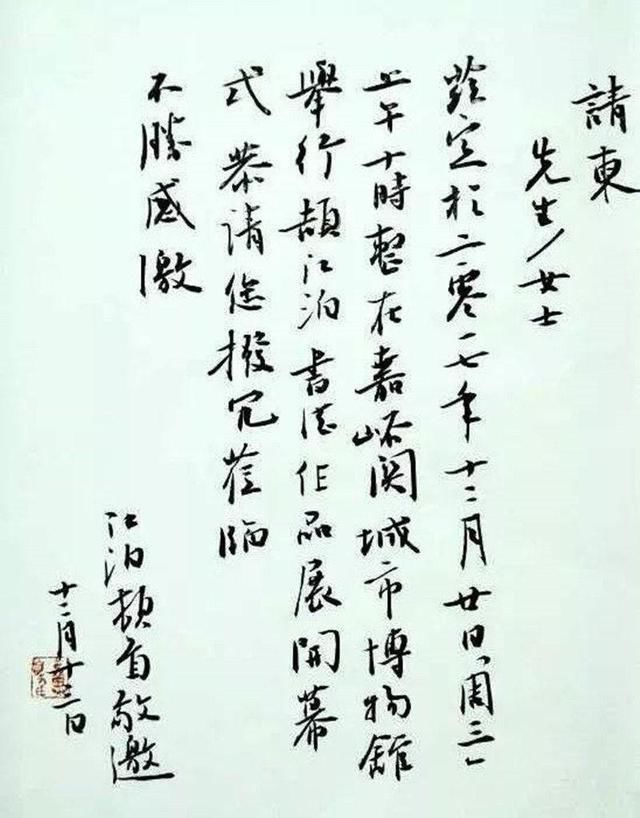 請柬
先生/女士
兹定於二零一七年十二月廿日(周三)
上午十時整在嘉峪関城市博物館
舉行頡江泊書法作品展開幕
式 恭請您撥冗莅臨
不勝感激
江泊頓首敬邀
十二月十三日